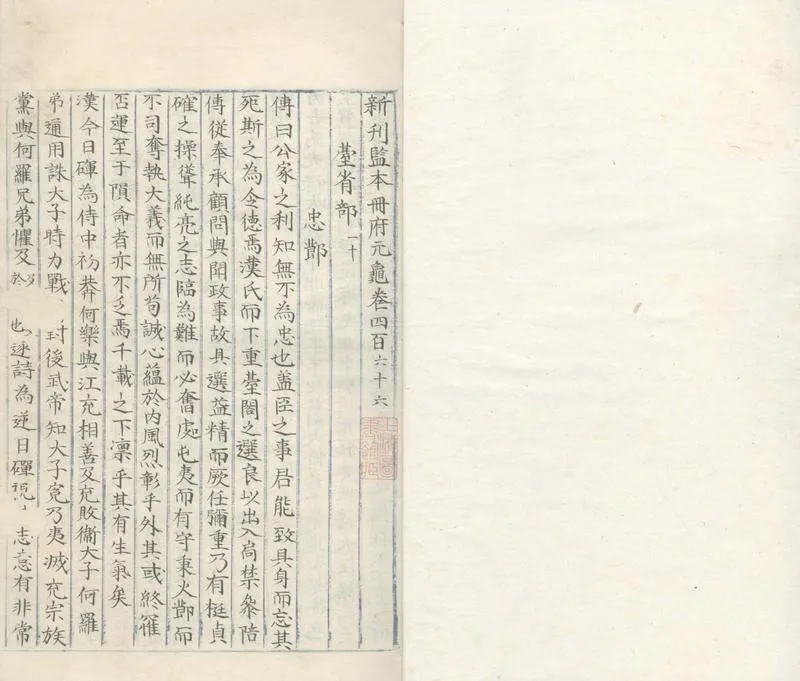 新刊監本冊府元龜卷四百六十六
臺省部 一十
忠節
傳曰公家之利知無不為忠也盖臣之事君能致其身而忘其
死斯之為令德焉漢氏而下重臺閣之選良以出入禁叅陪
傳從奉承顧問與聞政事故其選益精而厥任彌重乃有挺貞
確之操聳純亮之志臨為難而必奮處屯夷而有守秉大節而
不司奪執大義而無所苟誠心蘊於内風烈彰乎外其或終罹
否運至于隕命者亦不乏焉千載之下凛乎其有生氣矣
漢今日磾為侍中初莽何樂與江充相善及充敗衞大子何羅
弟通用誅大子時力戰 封後武帝知大子寃乃夷滅充宗族
黨與何羅兄弟懼及 於 也遂詩為逆日磾視 志意有非常